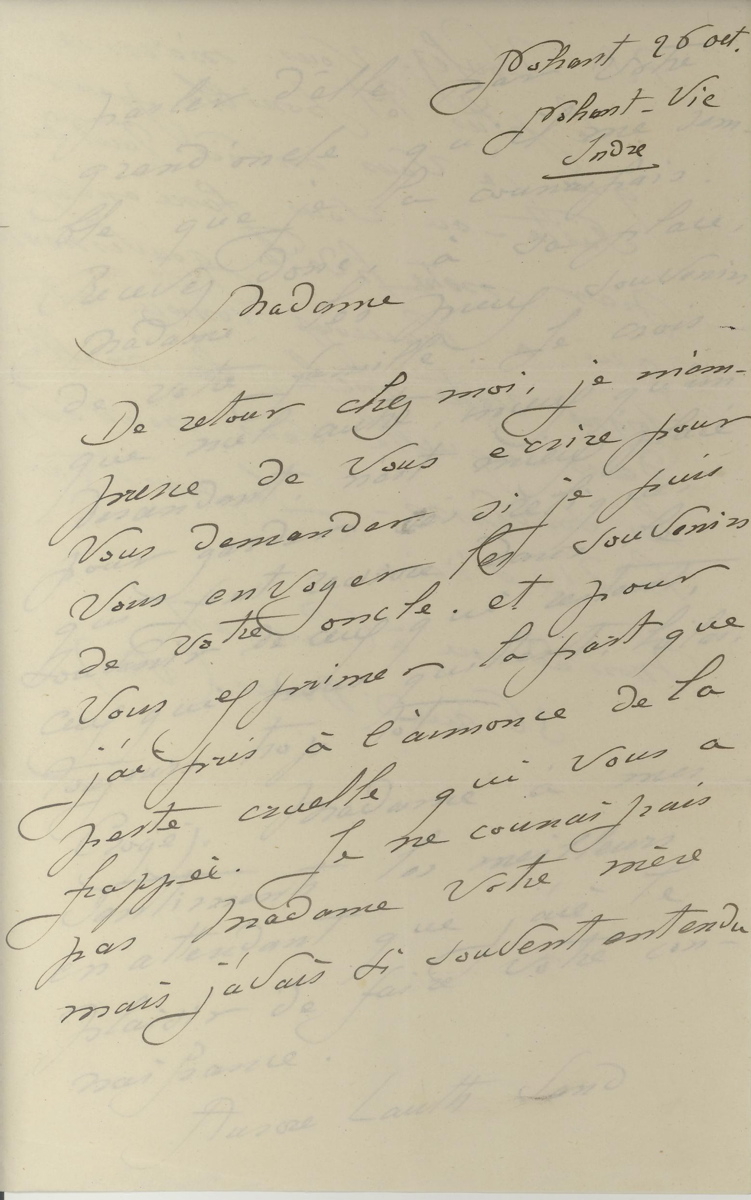 Nohant 26 oct.
Nohant-Vic
Indre
Madame
De retour chez moi, je m'em-
presse de vous écrire pour
vous demander si je puis
vous envoyer les souvenirs
de votre oncle. et pour
vous exprimer la part que
j'ai pris à l'annonce de la
perte cruelle qui vous a
frappée. Je ne connaissais
pas Madame votre mère
mais j'avais si souvent entendu